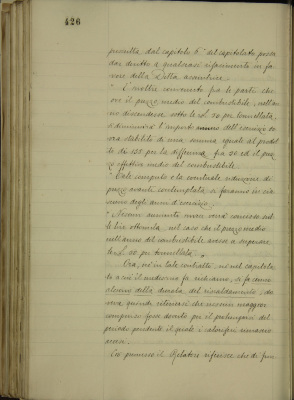 426
prescritta dal capitolo 6° del capitolato
dar diritto a qualsiasi risarcimento in fa-
vore della Ditta assuntrice.
" È inoltre convenuto fra le parti che
ove il prezzo medio del combustibile, nell'an-
no discendesse sotto le L. 50 per tonnellata,
s'diminuirà l'importo annuo dell'
stabilito di una somma eguale al prodot-
to di 135 per la differenza fra 50 ed il prez-
zo effettivo medio del combustibile.
" Tale computo e la eventuale riduzione di
prezzo avanti contemplata si faranno in
degli anni d'esercizio.
" Nessun aumento invece verrà concesso sul-
le lire ottomila, nel caso che il prezzo medio
nell'anno del combustibile avesse a superare
le L. 50 per tonnellata. "
Ora, nè in tale contratto, nè nel capitola-
to a cui il medesimo fa richiamo, si fa cenno
alcuno della durata del riscaldamento; do-
veva quindi ritenersi che nessun maggior
compenso fosse dovuto per il prolungarsi del
periodo durante il quale i caloriferi
accesi.
Ciò premesso il Relatore riferisce che di